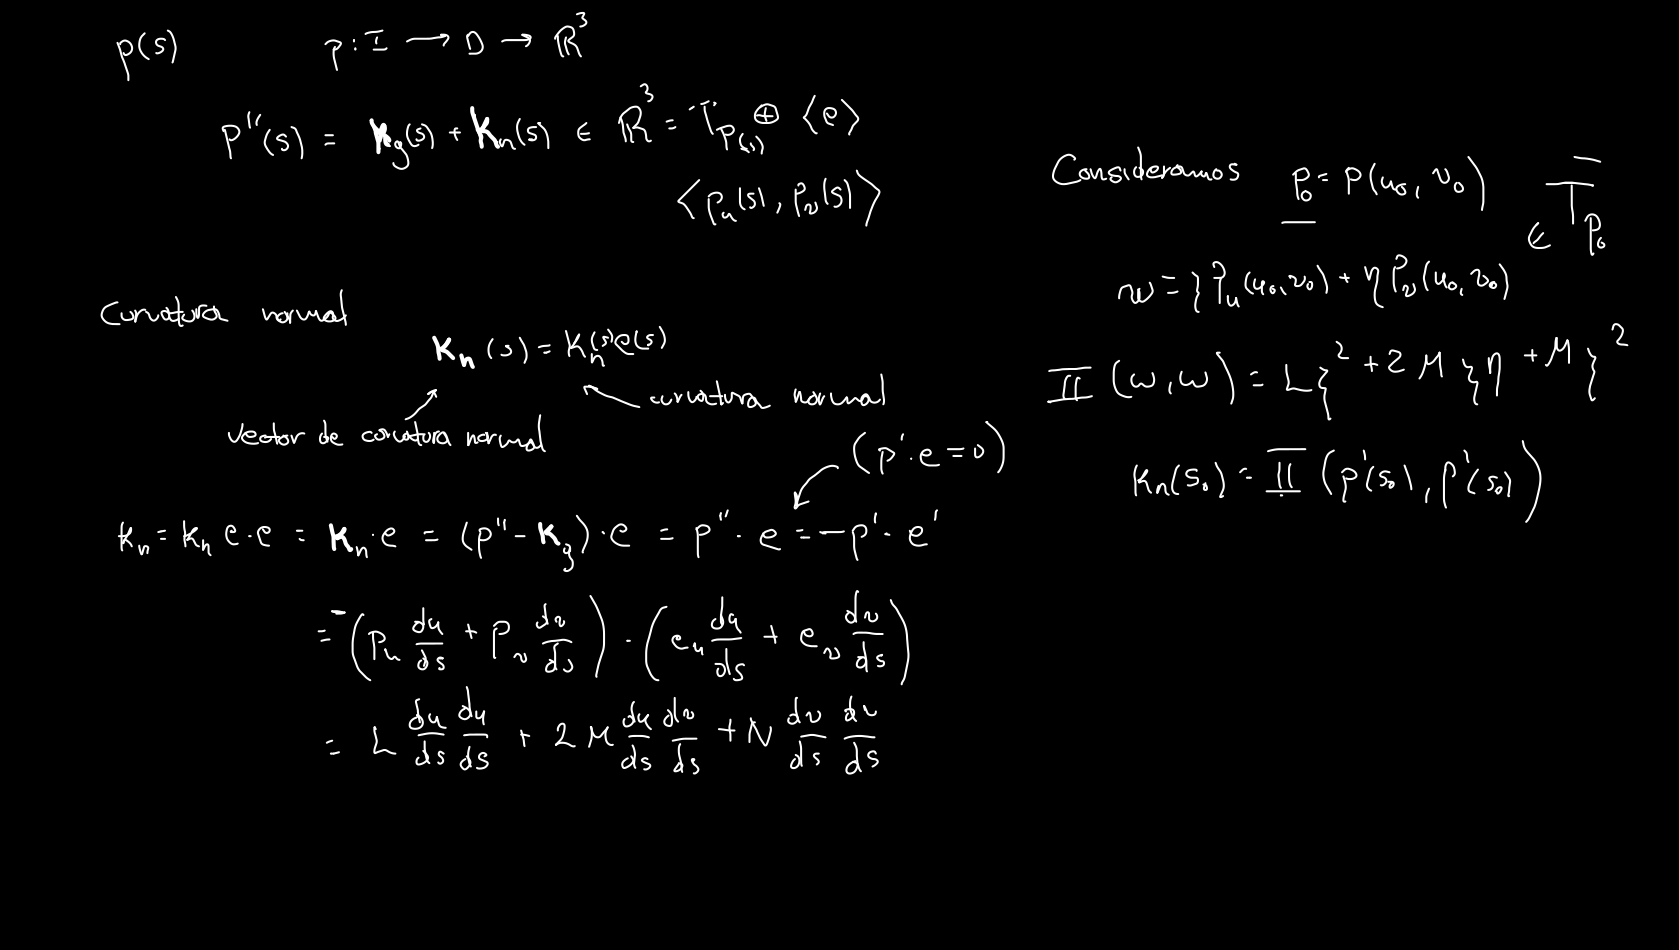 p(s) p : I → D → ℝ³
p''(s) = 𝐤g(s) + 𝐤n(s) ∈ ℝ³ = T_p(s) ⊕ ⟨e⟩
⟨p_u(s), p_v(s)⟩
Curvatura normal
𝐤n(s) = kn(s)e(s)
curvatura normal
vector de curvatura normal
(p'·e = 0)
kn = kn e·e = 𝐤n·e = (p'' - 𝐤g)·e = p''·e = -p'·e'
= -(p_u du/ds + p_v dv/ds)·(e_u du/ds + e_v dv/ds)
= L du/ds du/ds + 2M du/ds dv/ds + N dv/ds dv/ds
Consideramos p₀ = p(u₀, v₀)
w = ξ p_u(u₀, v₀) + η p_v(u₀, v₀) ∈ T_p₀
II(w, w) = Lξ² + 2Mξη + Mξ²
kn(s₀) = II(p'(s₀), p'(s₀))